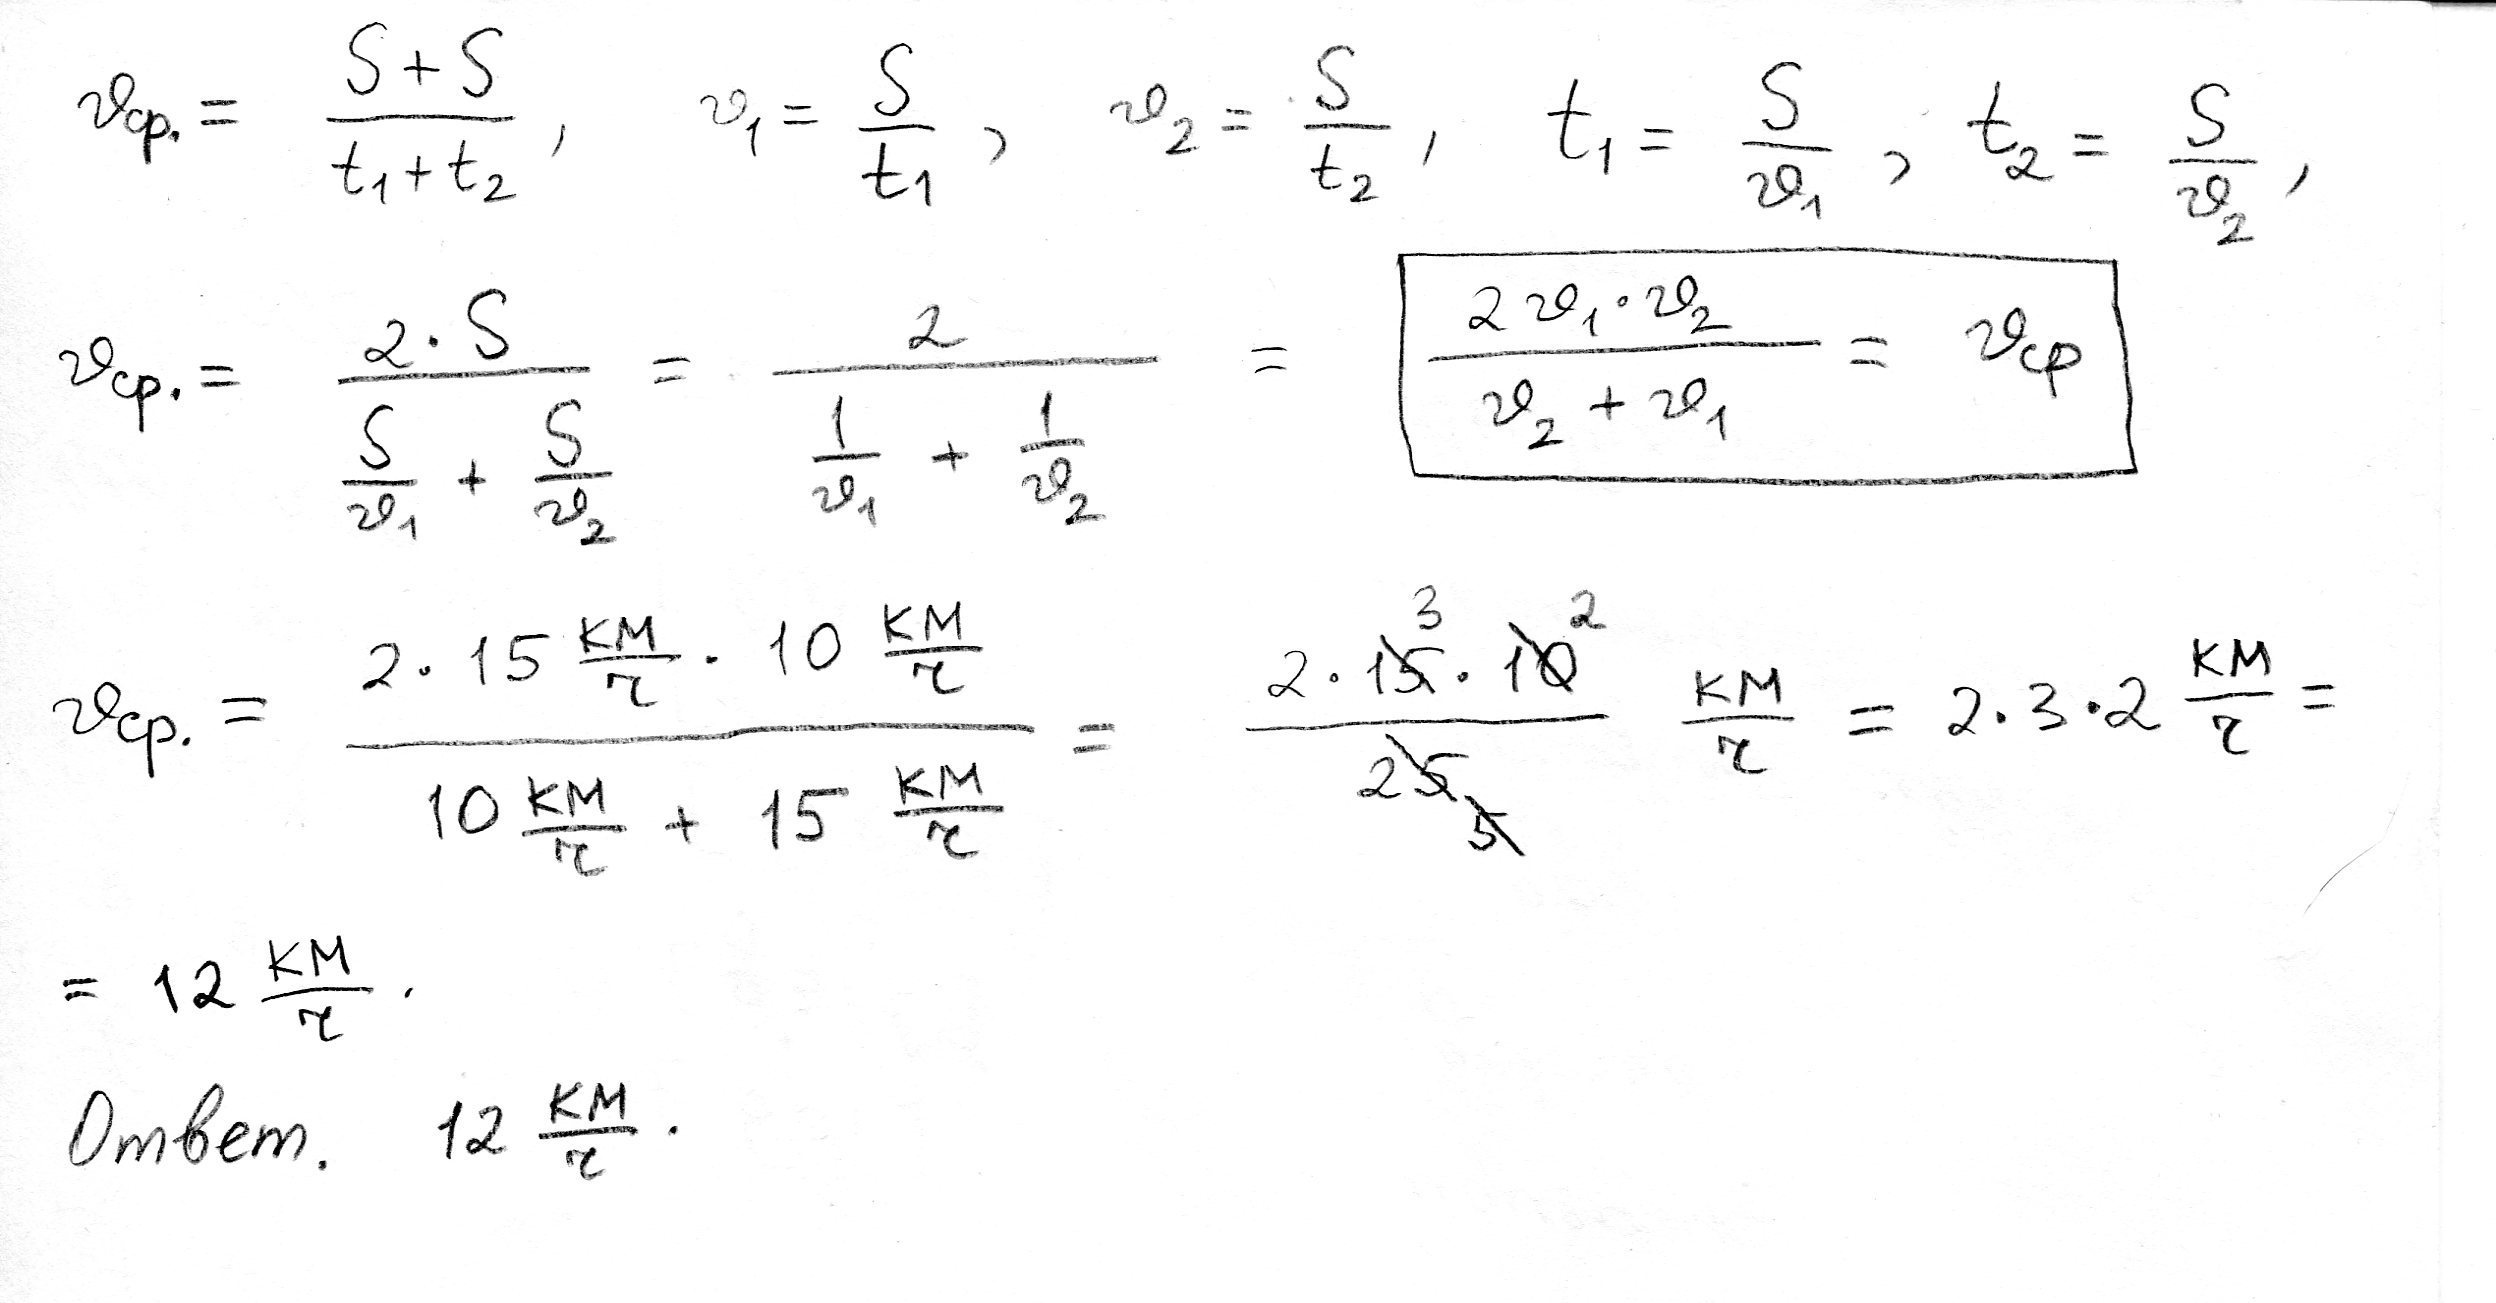 v_ср. = (S + S)/(t₁ + t₂), v₁ = S/t₁, v₂ = S/t₂, t₁ = S/v₁, t₂ = S/v₂,
v_ср. = (2 · S)/(S/v₁ + S/v₂) = 2/(1/v₁ + 1/v₂) = (2v₁ · v₂)/(v₂ + v₁) = v_ср
v_ср. = (2 · 15 км/ч · 10 км/ч)/(10 км/ч + 15 км/ч) = (2 · 15 3 · 10 2)/(25 5) км/ч = 2 · 3 · 2 км/ч =
= 12 км/ч.
Ответ. 12 км/ч.